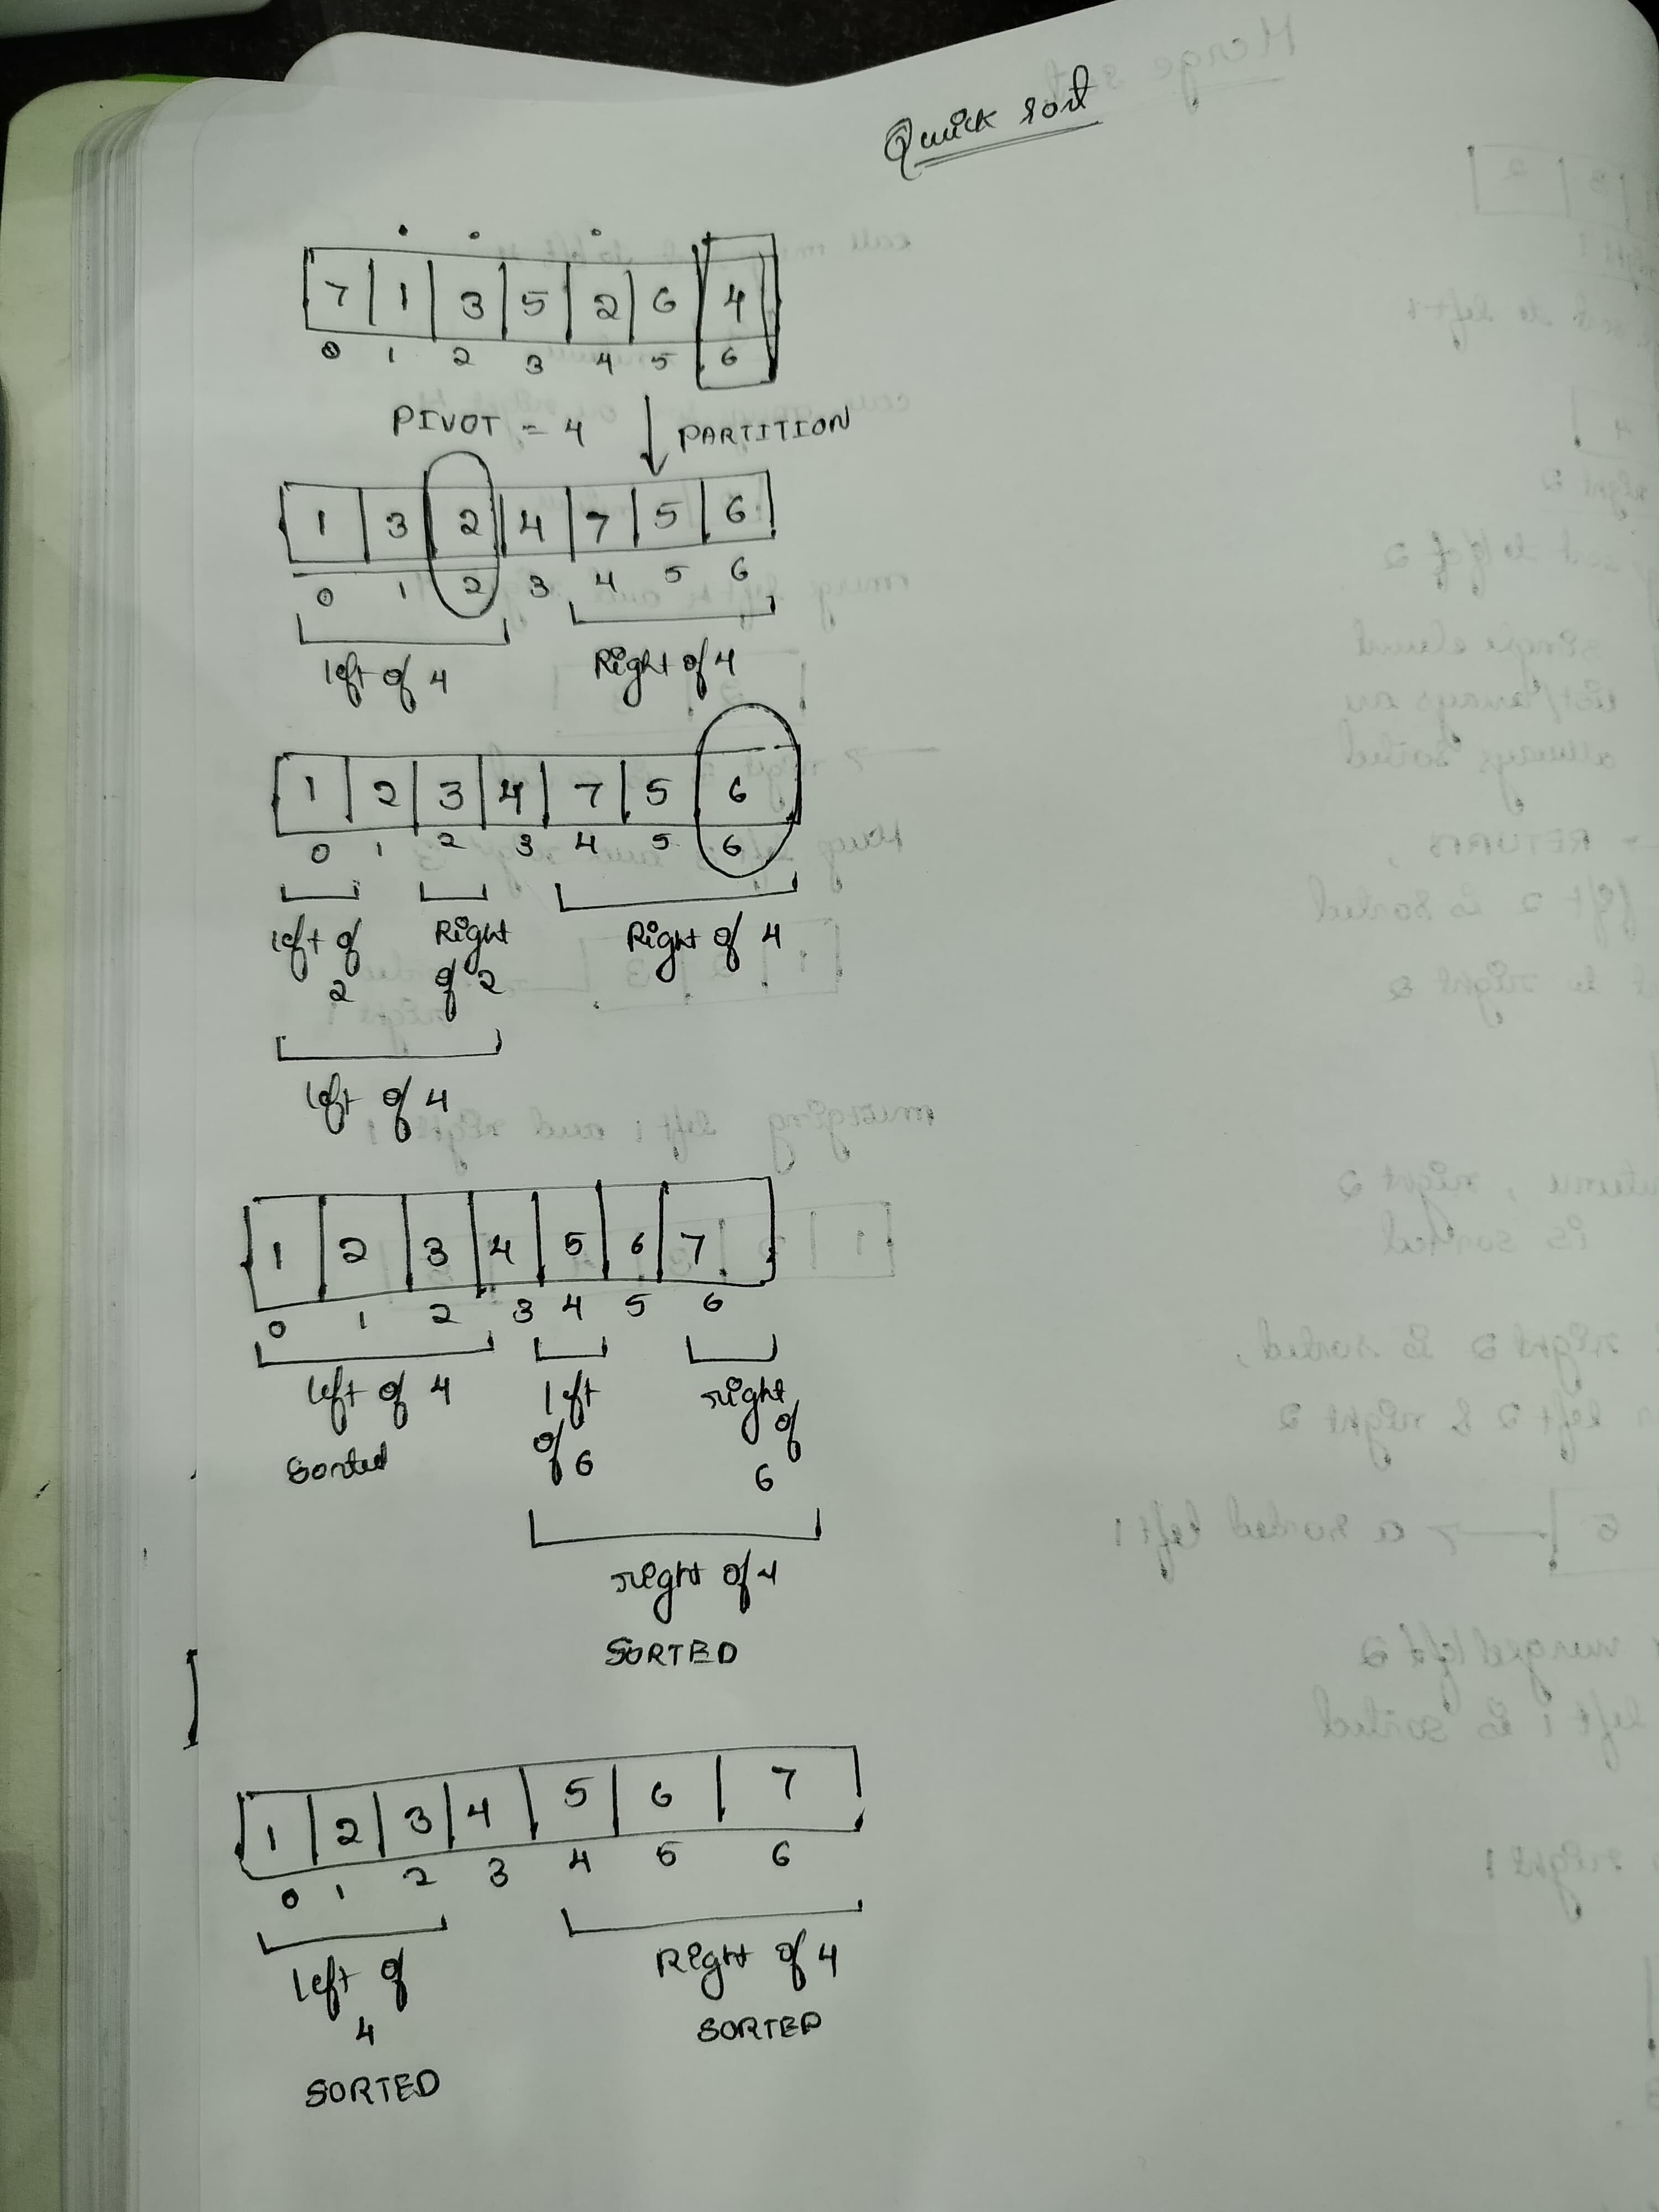 Quick sort
7 1 3 5 2 6 4
0 1 2 3 4 5 6
PIVOT = 4 PARTITION
1 3 2 4 7 5 6
0 1 2 3 4 5 6
left of 4 Right of 4
1 2 3 4 7 5 6
0 1 2 3 4 5 6
left of 2 Right of 2 Right of 4
left of 4
1 2 3 4 5 6 7
0 1 2 3 4 5 6
left of 4 left of 6 right of 6
Sorted
right of 4
SORTED
1 2 3 4 5 6 7
0 1 2 3 4 5 6
left of 4 Right of 4
SORTED SORTED